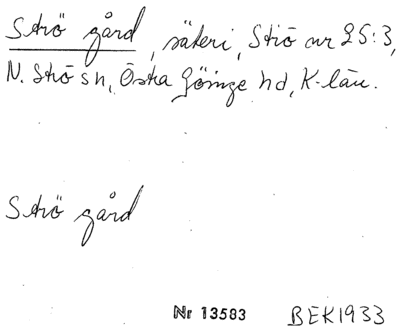 Strö gård, säteri, Strö nr 25:3,
N. Strö sn, Östra Göinge hd, K-län.
Strö gård
Nr 13583 BEK1933